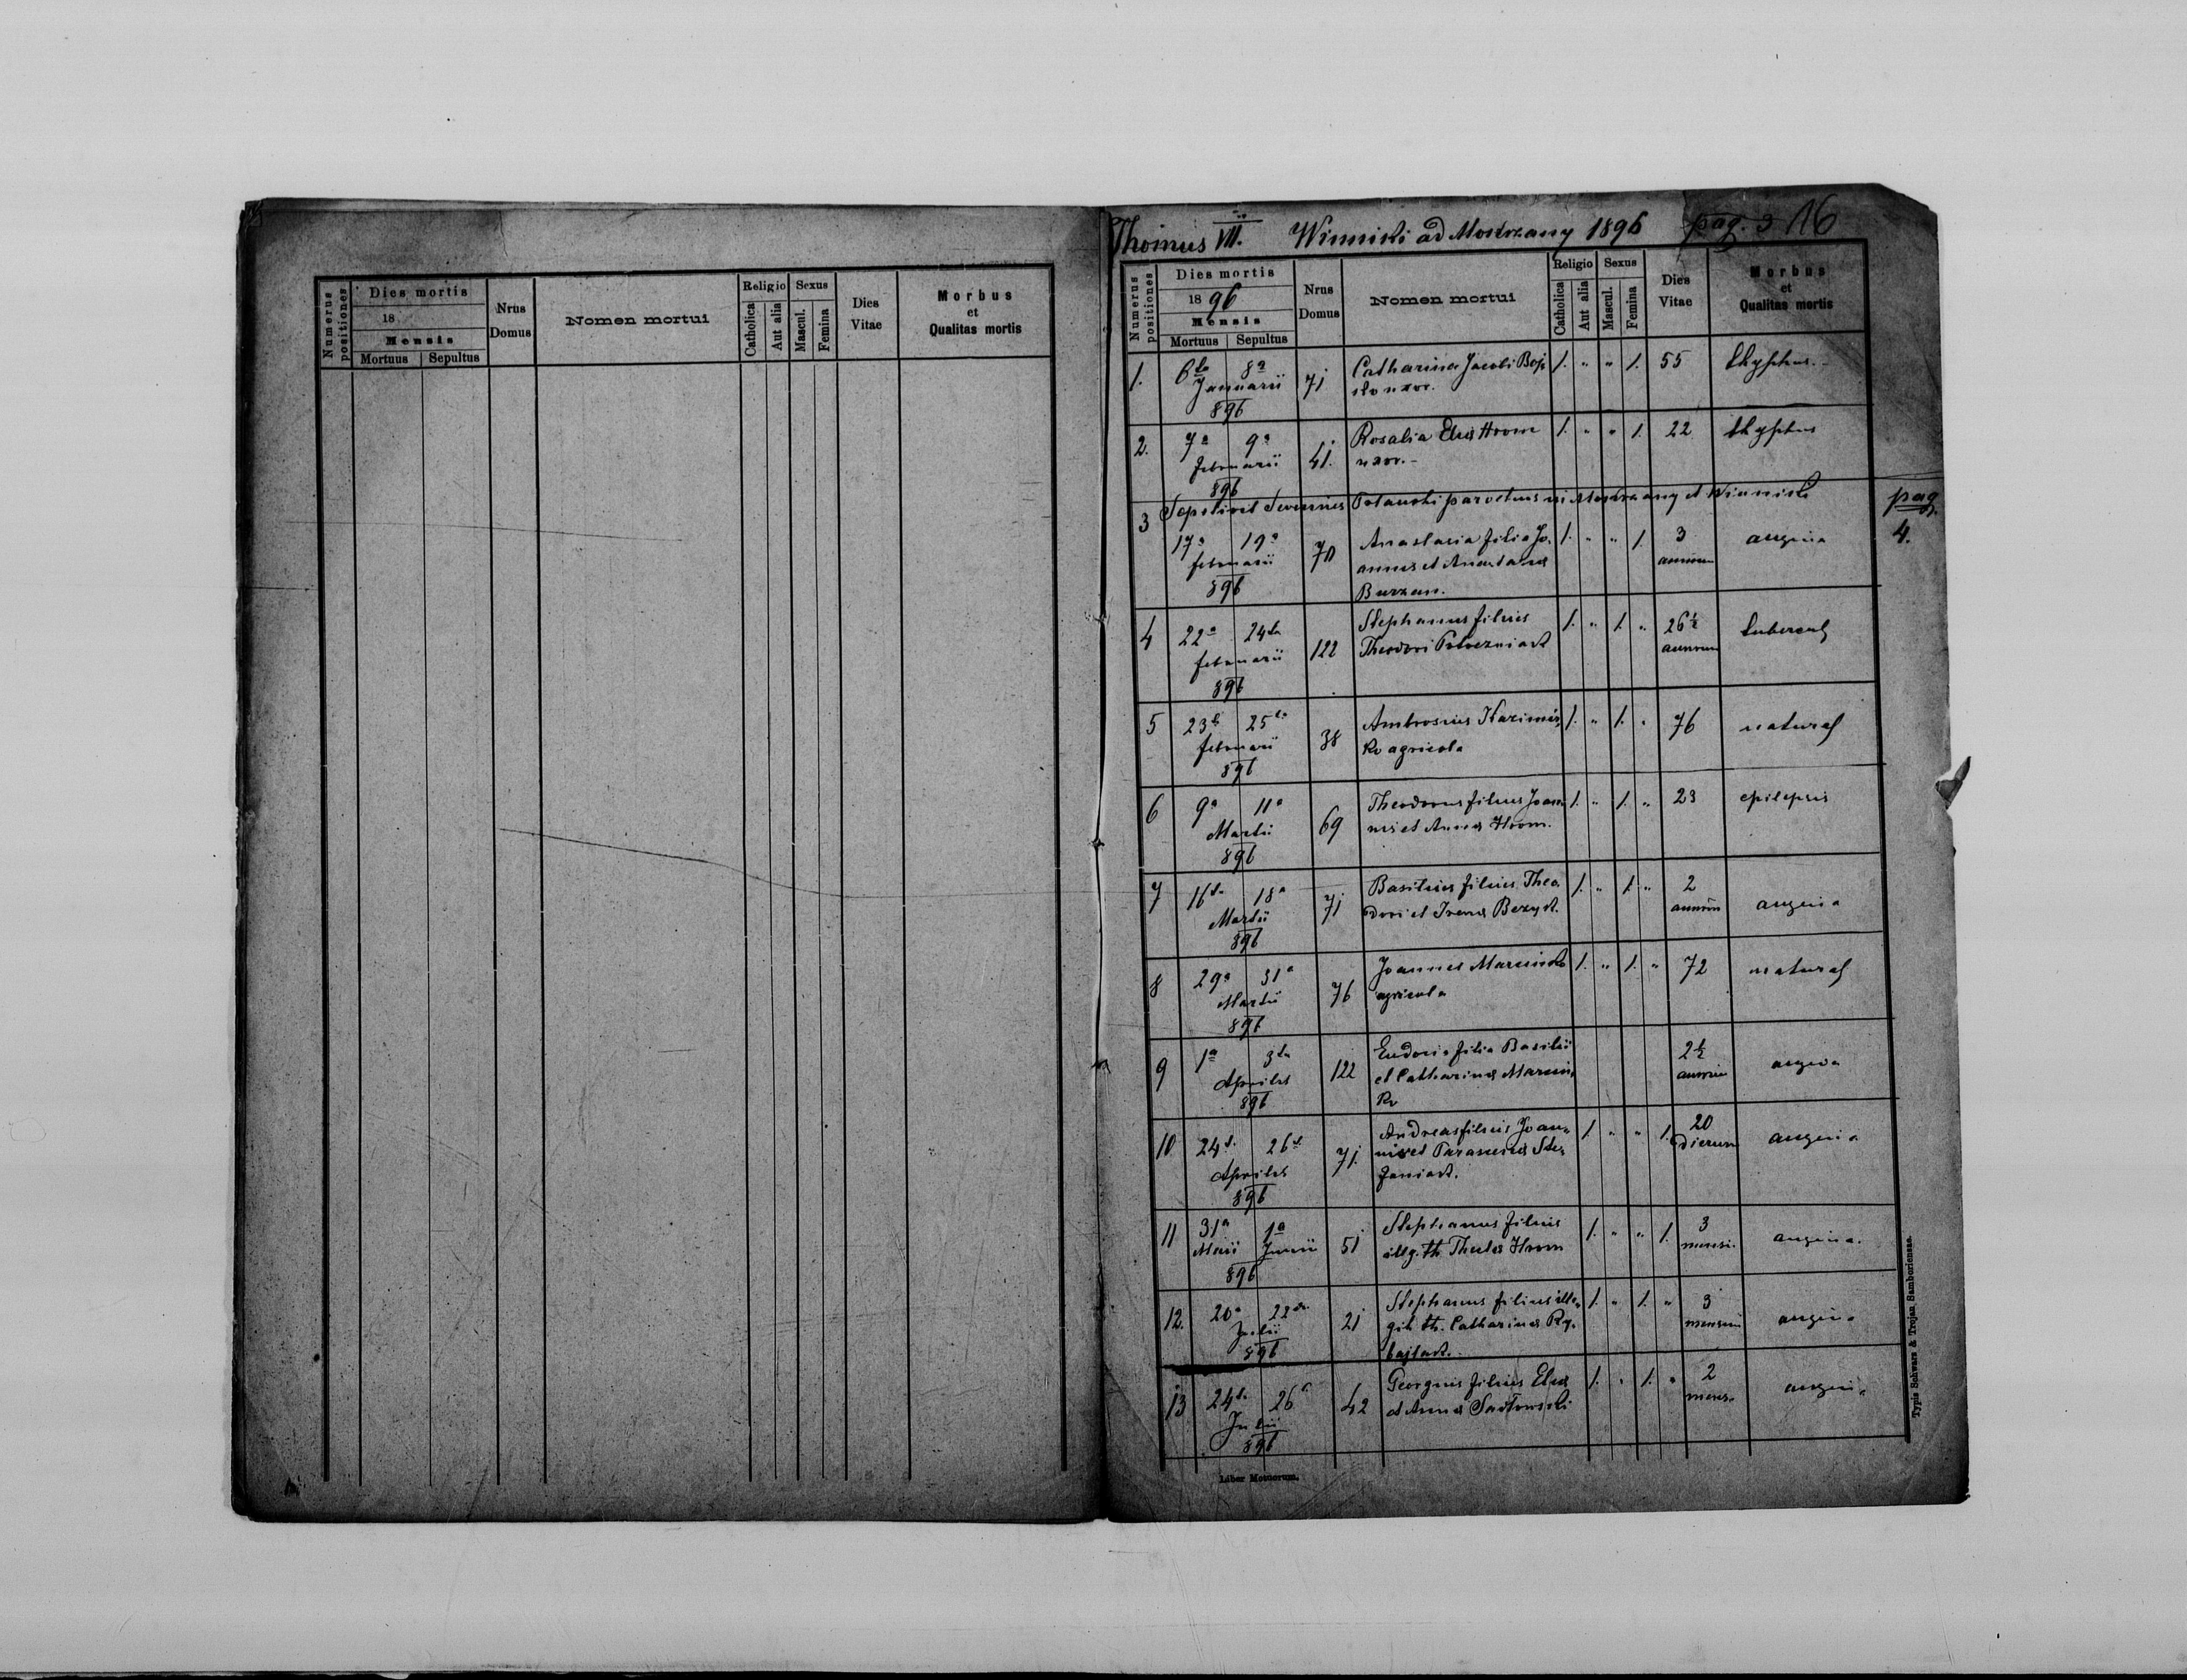 Numerus positiones
Dies mortis
18
Mensis
Mortuus Sepultus
Nrus Domus
Nomen mortui
Religio
Catholica Aut alia
Sexus
Mascul. Femina
Dies Vitae
Morbus
et
Qualitas mortis
Thomus VII. Winniki ad Mostrzany 1896 pag. 3 16
Numerus positiones
Dies mortis
1896
Mensis
Mortuus Sepultus
Nrus Domus
Nomen mortui
Religio
Catholica Aut alia
Sexus
Mascul. Femina
Dies Vitae
Morbus
et
Qualitas mortis
1. 6ta 8a 71 Catharina Jacobi 1. " " 1. 55 thyphus
Januarii uxor.
896
2. 7a 9a 41. Rosalia Eliæ Hrom 1. " " 1. 22 thyphus
Februarii uxor.
896
3 Sepelivit Severinus parochus Mostrzany et Winniki pag. 4.
17a 19a 70 Anastasia filia Jo- 1. " " 1. 3 angina
februarii annis et Anastasiæ annorum
896 Burzan.
4 22a 24ta 122 Stephanus filius 1. " 1. " 26½ tubercul
februarii Theodori annorum
896
5 23 25ta 38 Ambrosius 1. " 1. " 76 natural
februarii agricola
896
6 9a 11a 69 Theodorus filius Joan 1. " 1. " 23 epilepsis
Martii nis et Annæ Hrom.
896
7 16ta 18a 71 Basilius filius Theo 1. " 1. " 2 angina
Martii dori et Irenæ annorum
896
8 29a 31a 76 Joannes 1. " 1. " 72 natural
Martii agricola
896
9 1a 3ta 122 Eudocia filia Basilii 2½ angina
Aprilis et Catharinæ annorum
896
10 24 26 71. Andreas filius Joan- 1. " " 1. 20 angina
Aprilis nis et Parascevæ Ste- dierum
896
11 31a 1a 51 Stephanus filius 1. " " 1. 3 angina.
Maii Junii illeg. th. Theclæ Hrom mensi
896
12. 20a 22 21 Stephanus filius ille- 1. " 1. " 3 angina
Julii git. th. Catharinæ Ry- mensium
896
13 24ta 26 42 Georgius filius Eliæ 1. " 1. " 2 angina
Julii et Annæ Sadlowski mens.
896
Liber Motuorum.
Typis Schwarz & Trojan Samboriensae.